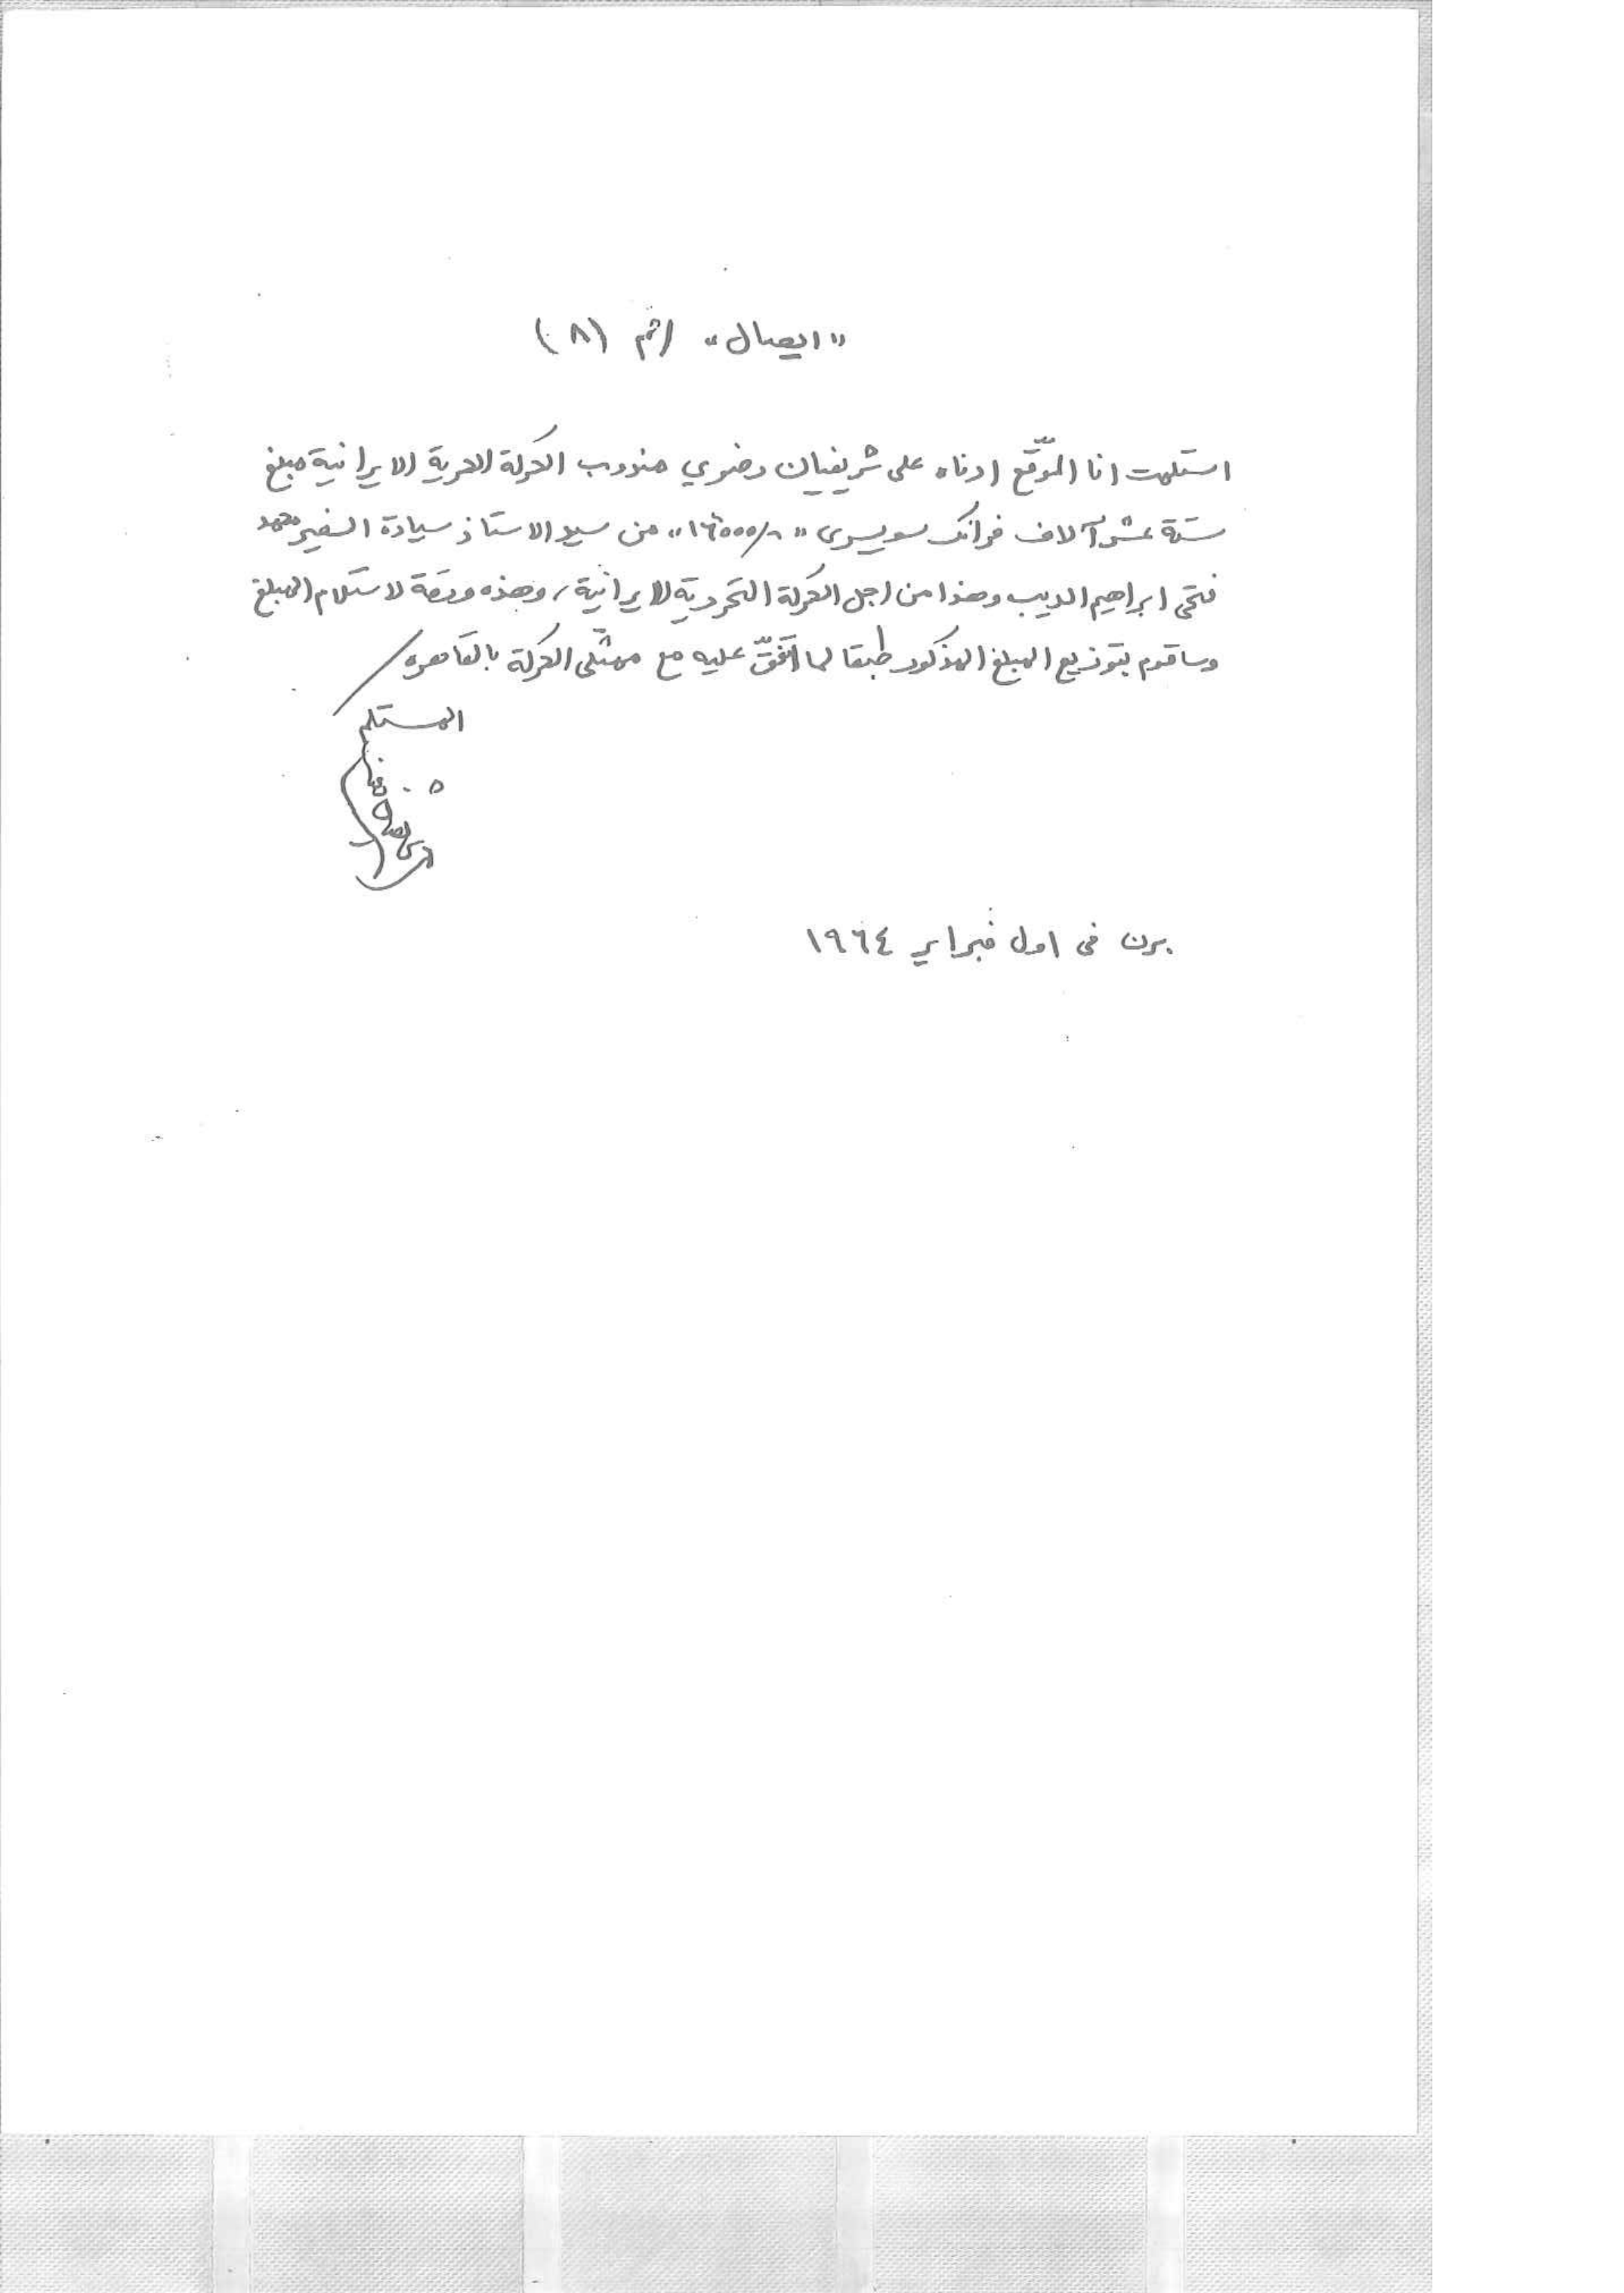 « ايصال » رقم (٨)
استلمت انا الموّقع ادناه على شريفيان رضوي مندوب الحركة الحرية الايرانية مبلغ
ستة عشر آلاف فرانك سويسرى « ١٦٠٠٠/- » من سيد الاستاذ سيادة السفير محمد
فتحى ابراهيم الديب وهذا من اجل الحركة التحررية الايرانية، وهذه ورقة لاستلام المبلغ
وساقوم بتوزيع المبلغ المذكور طبقا لما اتّفق عليه مع ممثلى الحركة بالقاهره /
المستلم
برن فى اول فبراير ١٩٦٤